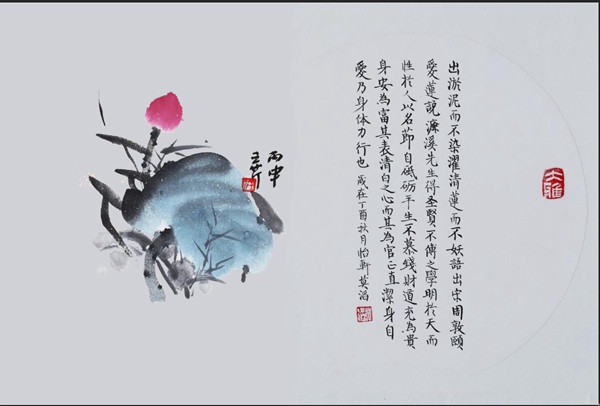 大雅
出淤泥而不染濯清蓮而不妖語出宋周敦頤
愛蓮說濂溪先生得圣賢不傳之學明於天而
性於人以名節自砥礪平生不慕錢財道充為貴
身安為富其表清白之心而其為官正直潔身自
愛乃身体力行也 歲在丁酉秋月怡軒莫滔
丙申